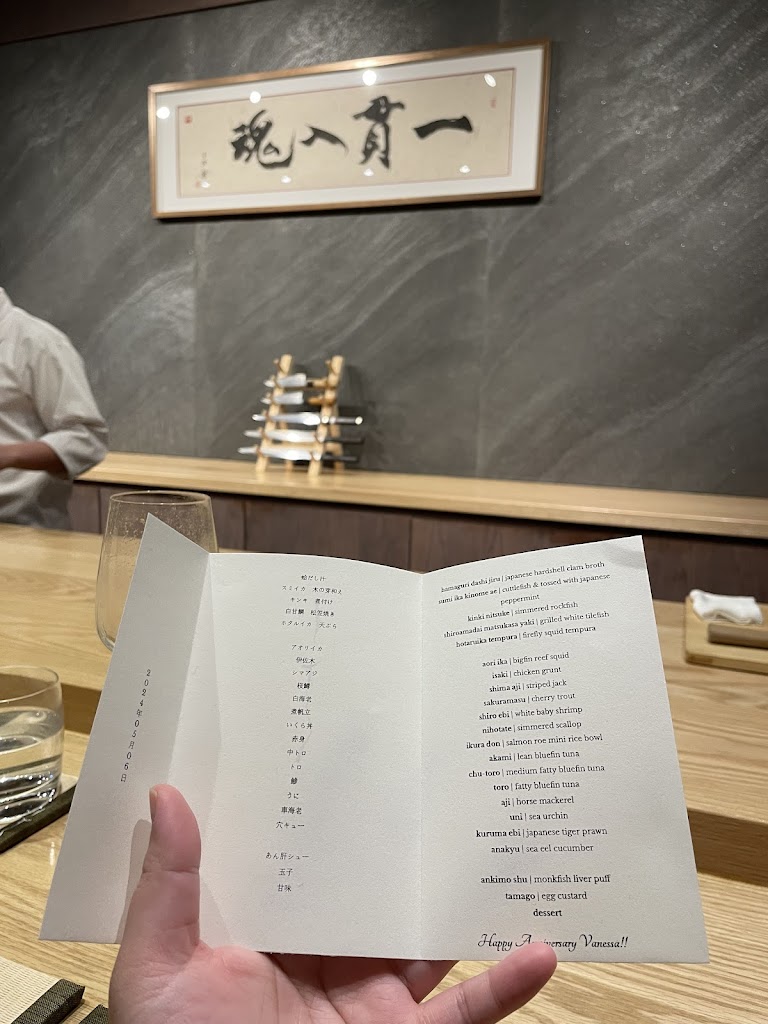 一貫入魂
2024年05月06日
蛤だし汁
スミイカ 木の芽和え
キンキ 煮付け
白甘鯛 松笠焼き
ホタルイカ 天ぷら
アオリイカ
伊佐木
シマアジ
桜鱒
白海老
煮帆立
いくら丼
赤身
中トロ
トロ
鯵
うに
車海老
穴キュー
あん肝シュー
玉子
甘味
hamaguri dashi jiru | japanese hardshell clam broth
sumi ika kinome ae | cuttlefish & tossed with japanese
peppermint
kinki nitsuke | simmered rockfish
shiroamadai matsukasa yaki | grilled white tilefish
hotaruika tempura | firefly squid tempura
aori ika | bigfin reef squid
isaki | chicken grunt
shima aji | striped jack
sakuramasu | cherry trout
shiro ebi | white baby shrimp
nihotate | simmered scallop
ikura don | salmon roe mini rice bowl
akami | lean bluefin tuna
chu-toro | medium fatty bluefin tuna
toro | fatty bluefin tuna
aji | horse mackerel
uni | sea urchin
kuruma ebi | japanese tiger prawn
anakyu | sea eel cucumber
ankimo shu | monkfish liver puff
tamago | egg custard
dessert
Happy Anniversary Vanessa!!